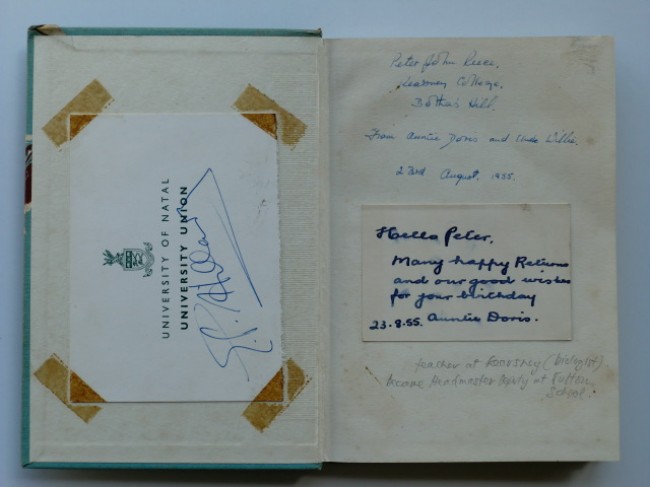 UNIVERSITY OF NATAL
UNIVERSITY UNION
E. P. Hillary
Peter John Reece,
Kearsney College,
Botha's Hill.
From Auntie Doris and Uncle Willie.
23rd August, 1955.
Hello Peter,
Many happy Returns
and our good wishes
for your birthday
23.8.55. Auntie Doris.
teacher at Kearsney (biologist)
became Headmaster Deputy at Fulton
School.